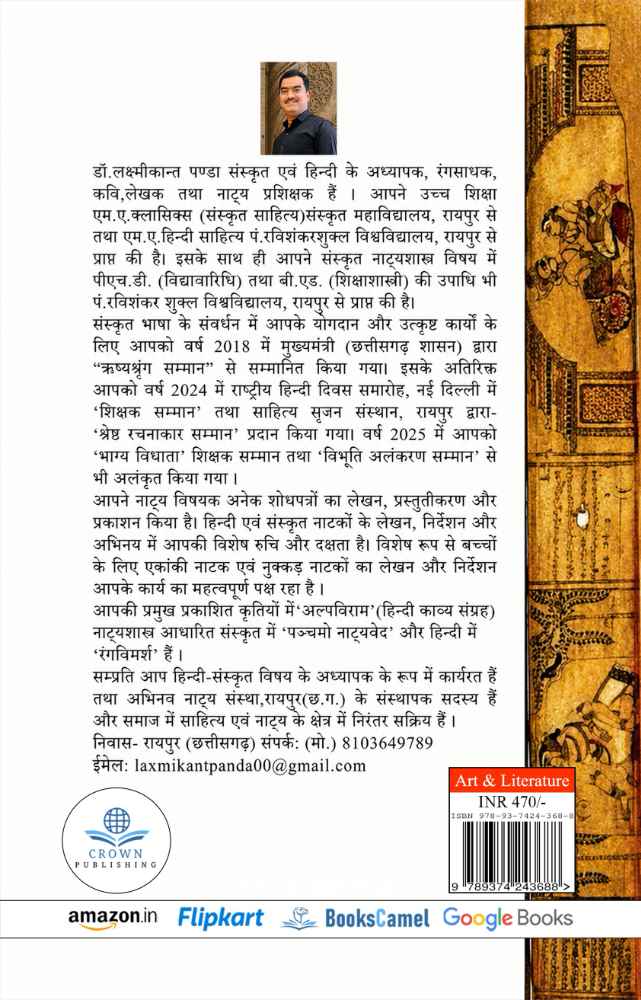 डॉ.लक्ष्मीकान्त पण्डा संस्कृत एवं हिन्दी के अध्यापक, रंगसाधक,
कवि,लेखक तथा नाट्य प्रशिक्षक हैं । आपने उच्च शिक्षा
एम.ए.क्लासिक्स (संस्कृत साहित्य)संस्कृत महाविद्यालय, रायपुर से
तथा एम.ए.हिन्दी साहित्य पं.रविशंकरशुक्ल विश्वविद्यालय, रायपुर से
प्राप्त की है। इसके साथ ही आपने संस्कृत नाट्यशास्त्र विषय में
पीएच.डी. (विद्यावारिधि) तथा बी.एड. (शिक्षाशास्त्री) की उपाधि भी
पं.रविशंकर शुक्ल विश्वविद्यालय, रायपुर से प्राप्त की है।
संस्कृत भाषा के संवर्धन में आपके योगदान और उत्कृष्ट कार्यों के
लिए आपको वर्ष 2018 में मुख्यमंत्री (छत्तीसगढ़ शासन) द्वारा
“ऋष्यश्रृंग सम्मान” से सम्मानित किया गया। इसके अतिरिक्त
आपको वर्ष 2024 में राष्ट्रीय हिन्दी दिवस समारोह, नई दिल्ली में
‘शिक्षक सम्मान’ तथा साहित्य सृजन संस्थान, रायपुर द्वारा-
‘श्रेष्ठ रचनाकार सम्मान’ प्रदान किया गया। वर्ष 2025 में आपको
‘भाग्य विधाता’ शिक्षक सम्मान तथा ‘विभूति अलंकरण सम्मान’ से
भी अलंकृत किया गया ।
आपने नाट्य विषयक अनेक शोधपत्रों का लेखन, प्रस्तुतीकरण और
प्रकाशन किया है। हिन्दी एवं संस्कृत नाटकों के लेखन, निर्देशन और
अभिनय में आपकी विशेष रुचि और दक्षता है। विशेष रूप से बच्चों
के लिए एकांकी नाटक एवं नुक्कड़ नाटकों का लेखन और निर्देशन
आपके कार्य का महत्वपूर्ण पक्ष रहा है ।
आपकी प्रमुख प्रकाशित कृतियों में‘अल्पविराम’(हिन्दी काव्य संग्रह)
नाट्यशास्त्र आधारित संस्कृत में ‘पञ्चमो नाट्यवेद’ और हिन्दी में
‘रंगविमर्श’ हैं ।
सम्प्रति आप हिन्दी-संस्कृत विषय के अध्यापक के रूप में कार्यरत हैं
तथा अभिनव नाट्य संस्था,रायपुर(छ.ग.) के संस्थापक सदस्य हैं
और समाज में साहित्य एवं नाट्य के क्षेत्र में निरंतर सक्रिय हैं ।
निवास- रायपुर (छत्तीसगढ़) संपर्क: (मो.) 8103649789
ईमेल: laxmikantpanda00@gmail.com
Art & Literature
INR 470/-
ISBN 978-93-7424-368-8
9 789374 243688 >
CROWN
PUBLISHING
amazon.in Flipkart BooksCamel Google Books